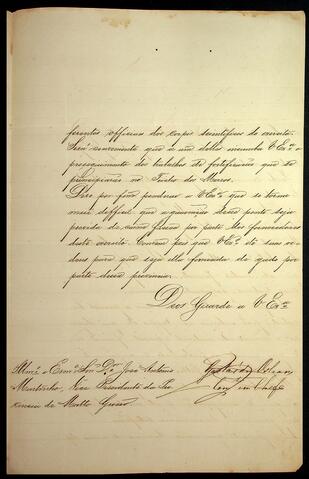 ferentes officiaes dos corpos scientificos do exercito.
Será conveniente que a um delles incumba V Exª o
proseguimento dos trabalhos de fortificação que se
principiarão no
Devo por fim ponderar a V Exª que se torna
mais difficil que a guarnição desse ponto seja
provida de carne fresca por parte dos fornecedores
deste exercito. Convem pois que V Exª dê suas or
dens para que seja ella fornecida de gado por
parte dessa provincia.
Deos Guarde a V Exª
Illmº e Exmº Snr Dr José Antonio
Murtinho, Vice Presidente da Pro
vincia de Matto Grosso